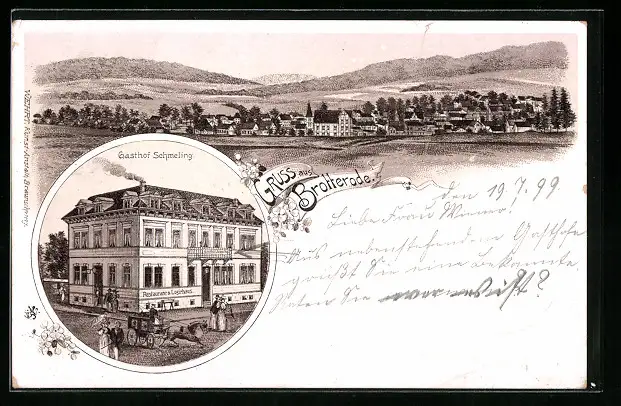 Gasthof Schmeling
GRUSS aus
Brotterode.
Restaurant u. Logirhaus.
den 19.7.99
Liebe Frau Werner!
Aus nebenstehendem Gasthofe
grüßt Sie eine Bekannte
Raten Sie wer es ist?